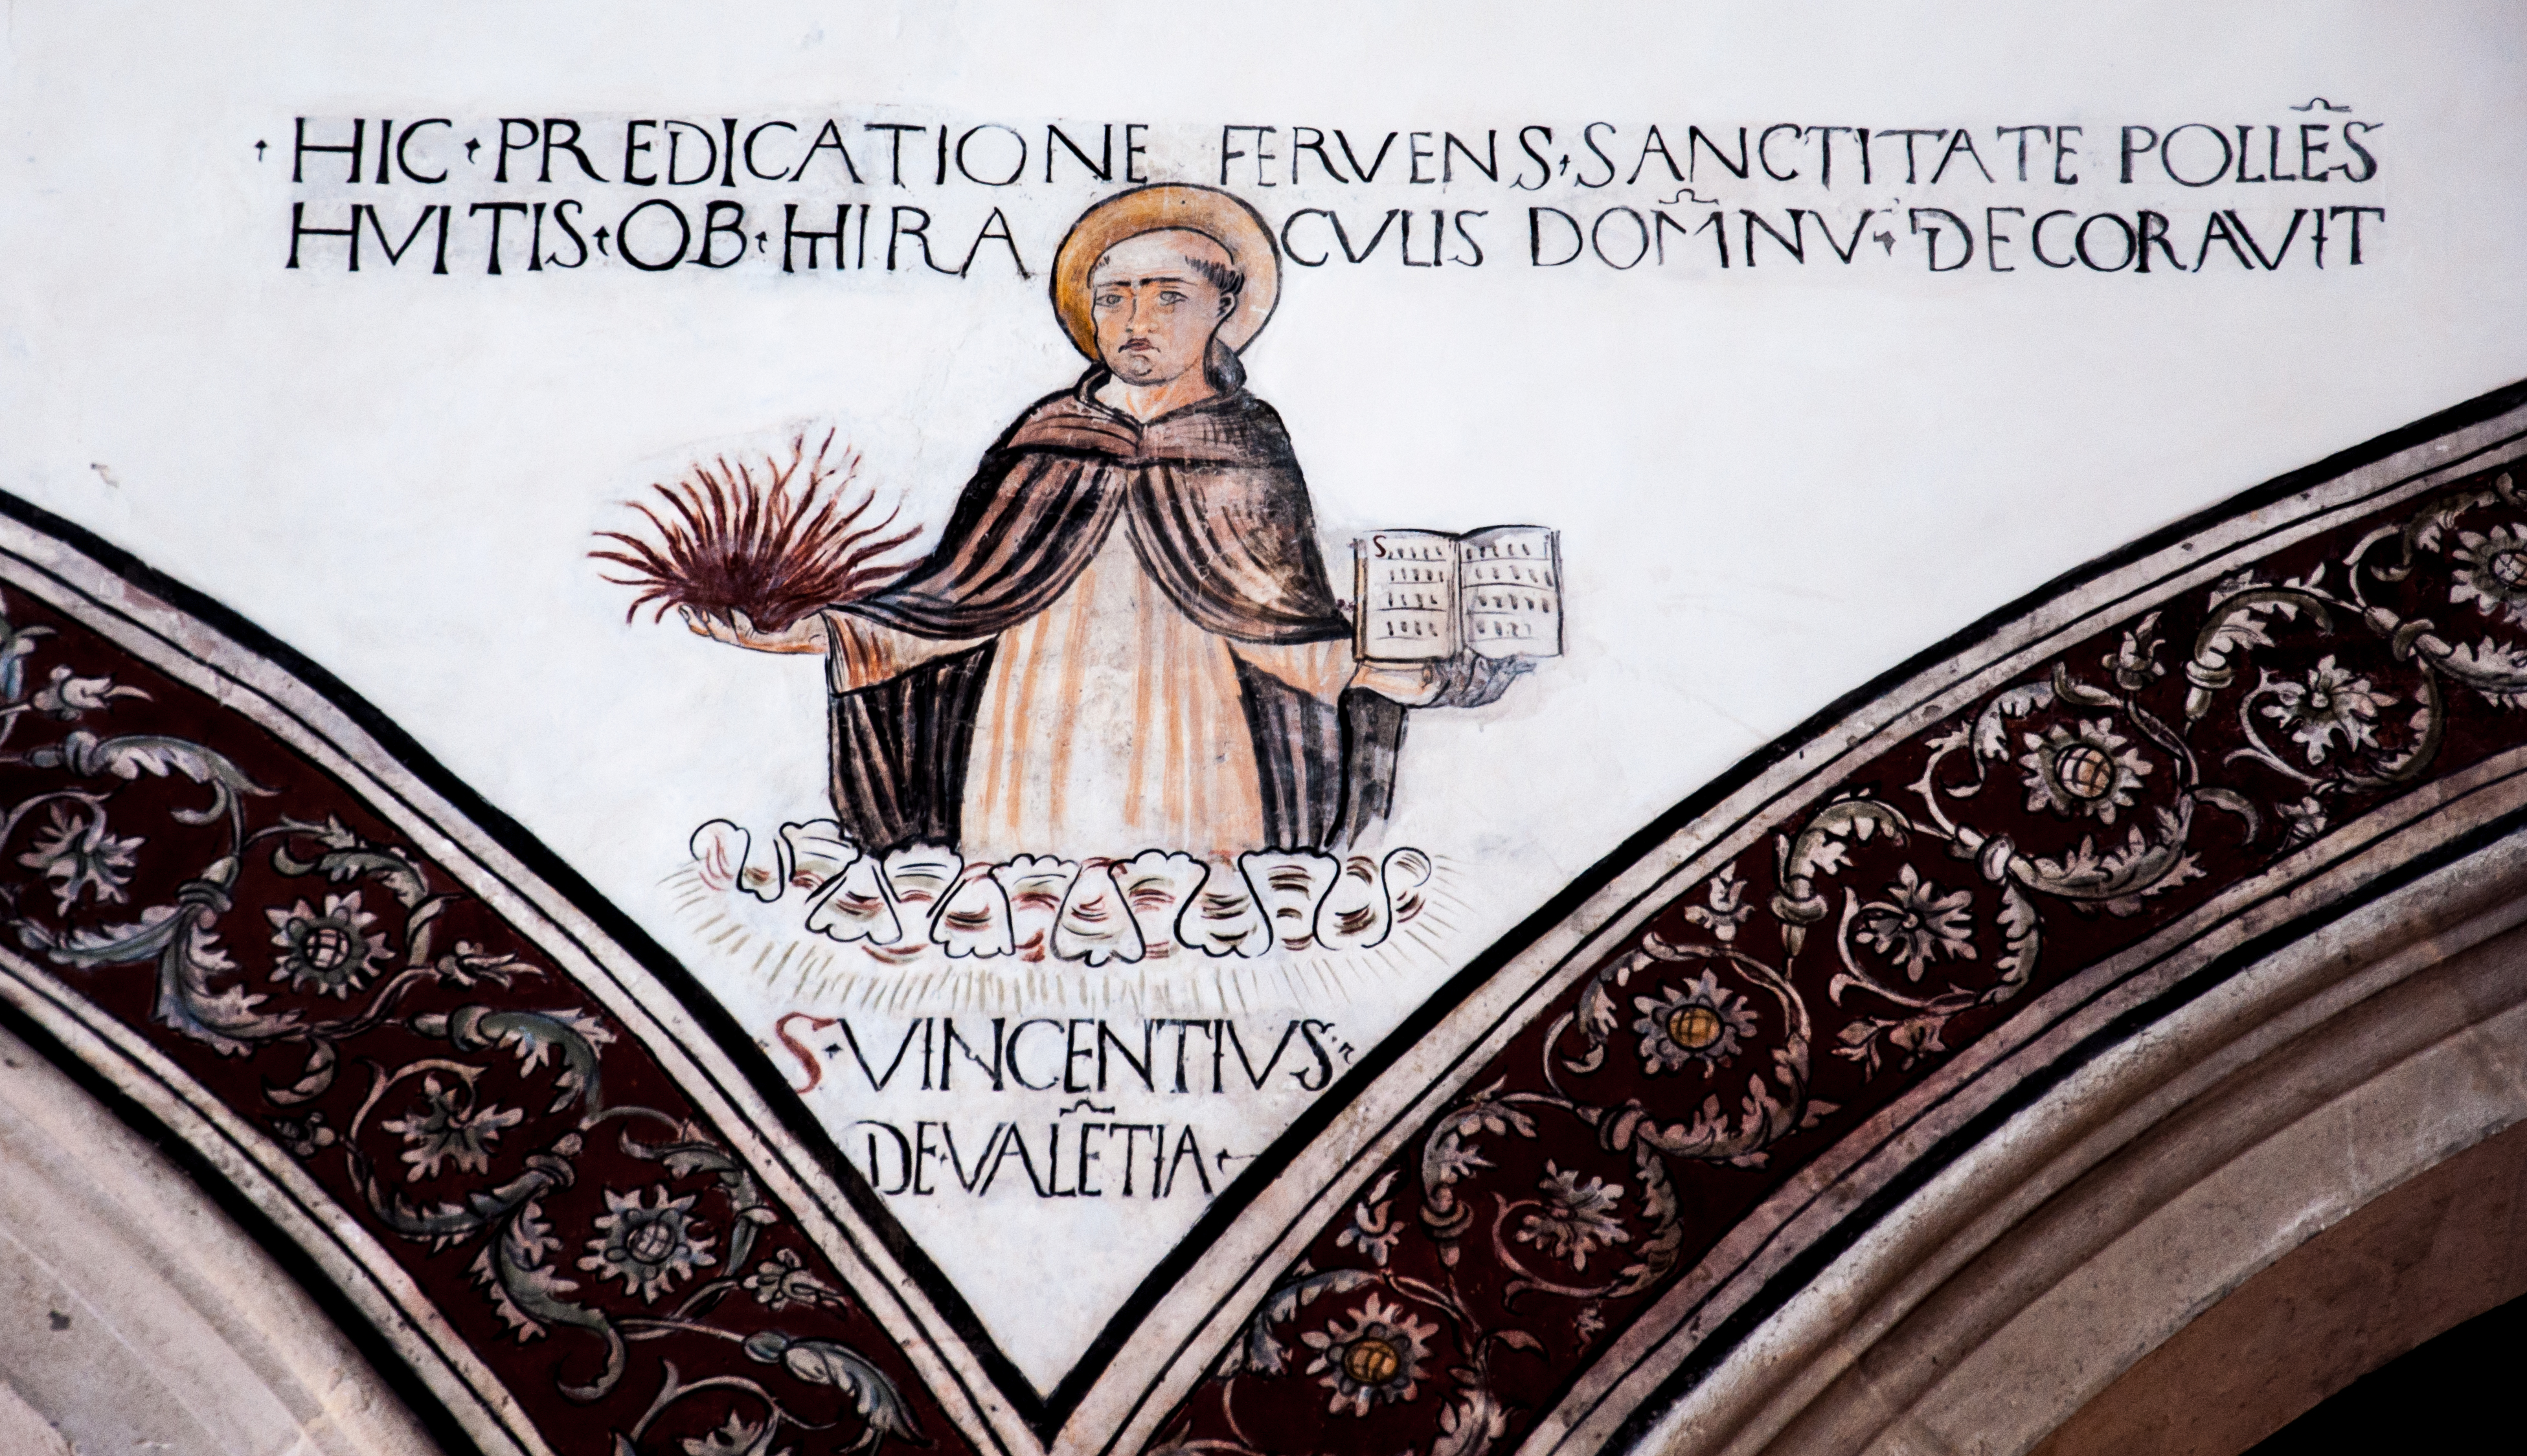 ·HIC·PREDICATIONE FERVENS·SANCTITATE POLLẼS
HVITIS·OB·MIRACVLIS DOM̃NV·DECORAVIT
S·VINCENTIVS·
DE·VALẼTIA·